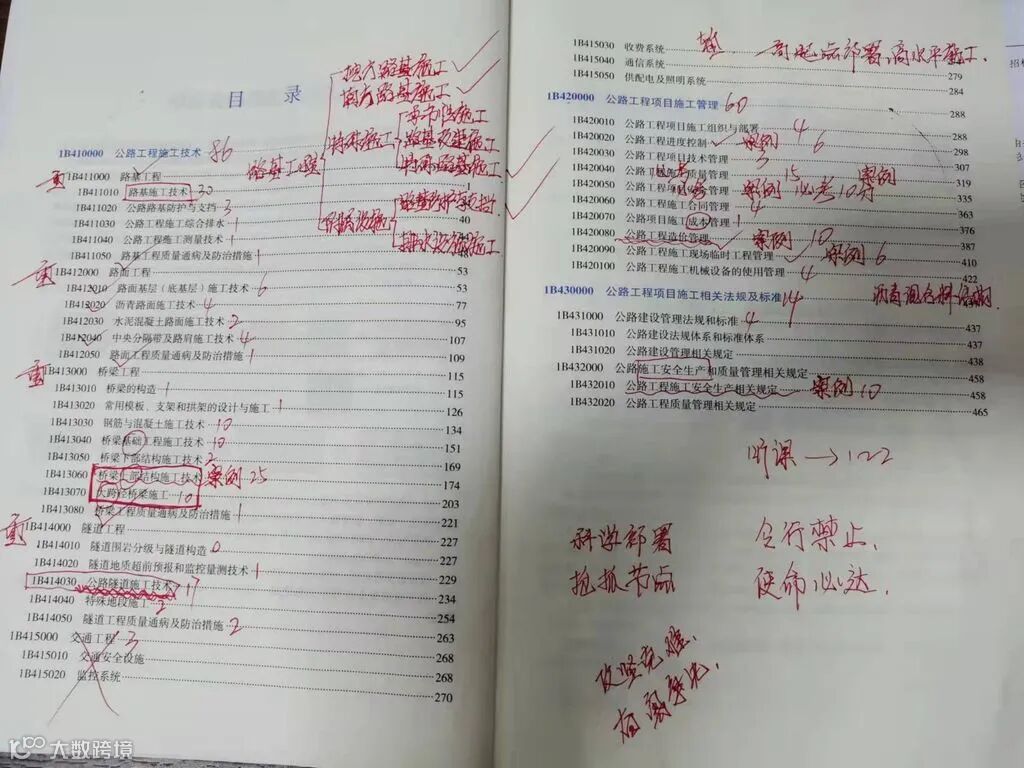 目 录
挖方路基施工
填方路基施工
特殊施工
季节性施工
路基改建施工
特殊路基施工
路基工程
路基防护与支挡
排水设施施工
1B410000 公路工程施工技术 86
重
1B411000 路基工程 1
1B411010 路基施工技术 30 1
1B411020 公路路基防护与支挡 3 40
1B411030 公路工程施工综合排水 1
1B411040 公路工程施工测量技术 1 48
1B411050 路基工程质量通病及防治措施 1
重
1B412000 路面工程 53
1B412010 路面基层(底基层)施工技术 6 53
1B412020 沥青路面施工技术 4 77
1B412030 水泥混凝土路面施工技术 2 95
1B412040 中央分隔带及路肩施工技术 4 107
1B412050 路面工程质量通病及防治措施 1 109
重
1B413000 桥梁工程 115
1B413010 桥梁的构造 1 115
1B413020 常用模板、支架和拱架的设计与施工 1 126
1B413030 钢筋与混凝土施工技术 10 134
1B413040 桥梁基础工程施工技术 10 151
1B413050 桥梁下部结构施工技术 2 169
1B413060 桥梁上部结构施工技术 案例 25 174
1B413070 大跨径桥梁施工 10 203
1B413080 桥梁工程质量通病及防治措施 1 221
重
1B414000 隧道工程 227
1B414010 隧道围岩分级与隧道构造 0 227
1B414020 隧道地质超前预报和监控量测技术 1 229
1B414030 公路隧道施工技术 17 234
1B414040 特殊地段施工 2 254
1B414050 隧道工程质量通病及防治措施 2 263
1B415000 交通工程 3 268
1B415010 交通安全设施 268
1B415020 监控系统 270
高起点部署,高水平施工
1B415030 收费系统
1B415040 通信系统 279
1B415050 供配电及照明系统 284
1B420000 公路工程项目施工管理 60 288
1B420010 公路工程项目施工组织与部署 4 288
1B420020 公路工程进度控制 案例 6 298
1B420030 公路工程项目技术管理 307
1B420040 公路工程项目质量管理 15 案例 319
1B420050 公路工程项目安全管理 案例 必考 10分 335
1B420060 公路工程施工合同管理 4 363
1B420070 公路项目施工成本管理 1 376
1B420080 公路工程造价管理 案例 10 387
1B420090 公路工程施工现场临时工程管理 案例 6 410
1B420100 公路工程施工机械设备的使用管理 4 422
1B430000 公路工程项目施工相关法规及标准 14
1B431000 公路建设管理法规和标准 4 437
1B431010 公路建设法规体系和标准体系 437
1B431020 公路建设管理相关规定 438
1B432000 公路施工安全生产和质量管理相关规定 458
1B432010 公路工程施工安全生产相关规定 案例 10 458
1B432020 公路工程质量管理相关规定 465
听课→122
科学部署 令行禁止,
抢抓节点 使命必达.
攻坚克难,
大数跨境